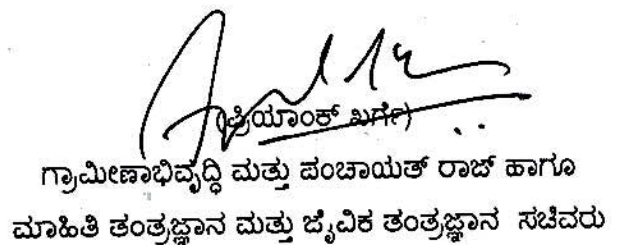 (ಪ್ರಿಯಾಂಕ್ ಖರ್ಗೆ)
ಗ್ರಾಮೀಣಾಭಿವೃದ್ಧಿ ಮತ್ತು ಪಂಚಾಯತ್ ರಾಜ್ ಹಾಗೂ
ಮಾಹಿತಿ ತಂತ್ರಜ್ಞಾನ ಮತ್ತು ಜೈವಿಕ ತಂತ್ರಜ್ಞಾನ ಸಚಿವರು